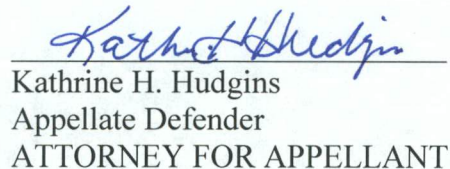 Kathrine H Hudgins
Kathrine H. Hudgins
Appellate Defender
ATTORNEY FOR APPELLANT